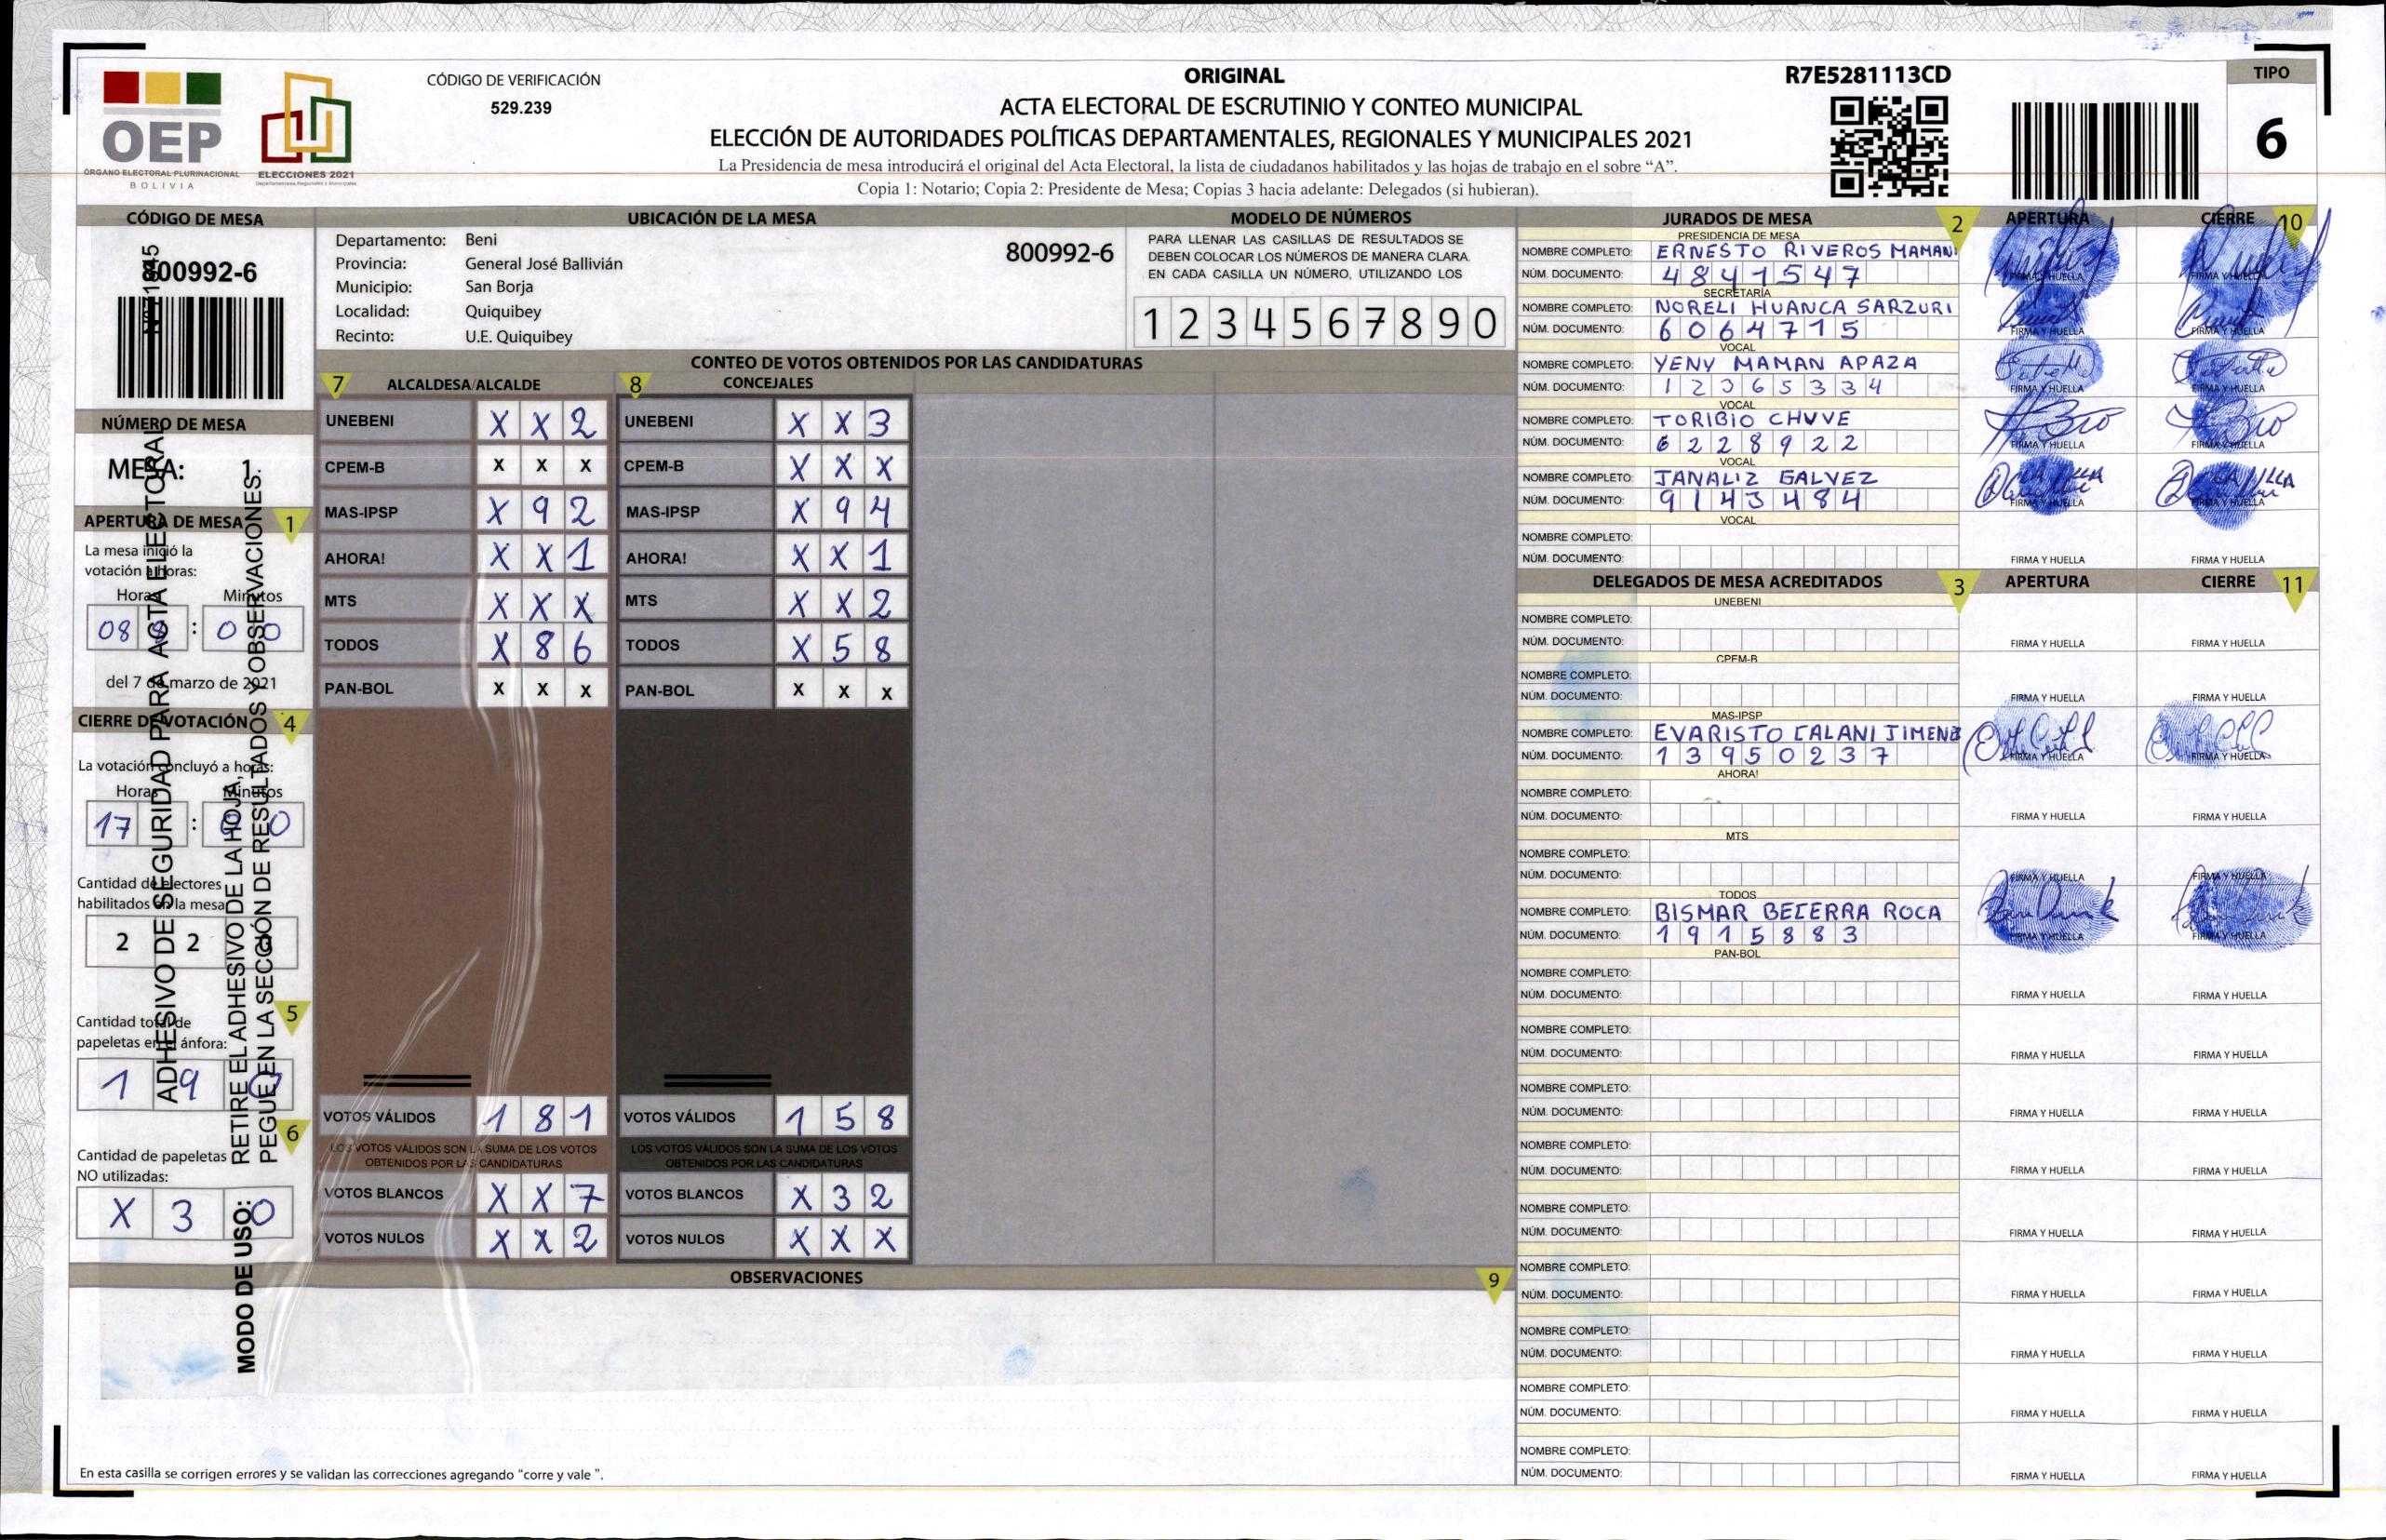 CÓDIGO DE VERIFICACIÓN
529.239
OEP
ÓRGANO ELECTORAL PLURINACIONAL
BOLIVIA
ELECCIONES 2021
Departamentales, Regionales y Municipales
ORIGINAL
ACTA ELECTORAL DE ESCRUTINIO Y CONTEO MUNICIPAL
ELECCIÓN DE AUTORIDADES POLÍTICAS DEPARTAMENTALES, REGIONALES Y MUNICIPALES 2021
La Presidencia de mesa introducirá el original del Acta Electoral, la lista de ciudadanos habilitados y las hojas de trabajo en el sobre “A”.
Copia 1: Notario; Copia 2: Presidente de Mesa; Copias 3 hacia adelante: Delegados (si hubieran).
R7E5281113CD
TIPO
6
CÓDIGO DE MESA
800992-6
NÚMERO DE MESA
MESA: 1
APERTURA DE MESA 1
La mesa inició la
votación a horas:
Horas Minutos
08 : 00
del 7 de marzo de 2021
CIERRE DE VOTACIÓN 4
La votación concluyó a horas:
Horas Minutos
17 : 00
Cantidad de electores
habilitados en la mesa:
2 2
5
Cantidad total de
papeletas en el ánfora:
1 9 0
6
Cantidad de papeletas
NO utilizadas:
X 3 0
ADHESIVO DE SEGURIDAD PARA ACTA ELECTORAL
MODO DE USO: RETIRE EL ADHESIVO DE LA HOJA,
PEGUE EN LA SECCIÓN DE RESULTADOS Y OBSERVACIONES.
UBICACIÓN DE LA MESA
Departamento: Beni
800992-6
Provincia: General José Ballivián
Municipio: San Borja
Localidad: Quiquibey
Recinto: U.E. Quiquibey
MODELO DE NÚMEROS
PARA LLENAR LAS CASILLAS DE RESULTADOS SE
DEBEN COLOCAR LOS NÚMEROS DE MANERA CLARA
EN CADA CASILLA UN NÚMERO, UTILIZANDO LOS
1 2 3 4 5 6 7 8 9 0
CONTEO DE VOTOS OBTENIDOS POR LAS CANDIDATURAS
7 ALCALDESA/ALCALDE
UNEBENI X X 2
CPEM-B X X X
MAS-IPSP X 9 2
AHORA! X X 1
MTS X X X
TODOS X 8 6
PAN-BOL X X X
VOTOS VÁLIDOS 1 8 1
LOS VOTOS VÁLIDOS SON LA SUMA DE LOS VOTOS
OBTENIDOS POR LAS CANDIDATURAS
VOTOS BLANCOS X X 7
VOTOS NULOS X X 2
8 CONCEJALES
UNEBENI X X 3
CPEM-B X X X
MAS-IPSP X 9 4
AHORA! X X 1
MTS X X 2
TODOS X 5 8
PAN-BOL X X X
VOTOS VÁLIDOS 1 5 8
LOS VOTOS VÁLIDOS SON LA SUMA DE LOS VOTOS
OBTENIDOS POR LAS CANDIDATURAS
VOTOS BLANCOS X 3 2
VOTOS NULOS X X X
OBSERVACIONES 9
En esta casilla se corrigen errores y se validan las correcciones agregando “corre y vale ”.
JURADOS DE MESA 2 APERTURA CIERRE 10
PRESIDENCIA DE MESA
NOMBRE COMPLETO: ERNESTO RIVEROS MAMANI
NÚM. DOCUMENTO: 4841547
FIRMA Y HUELLA FIRMA Y HUELLA
SECRETARÍA
NOMBRE COMPLETO: NORELI HUANCA SARZURI
NÚM. DOCUMENTO: 6064715
FIRMA Y HUELLA FIRMA Y HUELLA
VOCAL
NOMBRE COMPLETO: YENY MAMAN APAZA
NÚM. DOCUMENTO: 12365334
FIRMA Y HUELLA FIRMA Y HUELLA
VOCAL
NOMBRE COMPLETO: TORIBIO CHUVE
NÚM. DOCUMENTO: 6228922
FIRMA Y HUELLA FIRMA Y HUELLA
VOCAL
NOMBRE COMPLETO: JANALIZ GALVEZ
NÚM. DOCUMENTO: 9143484
FIRMA Y HUELLA FIRMA Y HUELLA
VOCAL
NOMBRE COMPLETO:
NÚM. DOCUMENTO: FIRMA Y HUELLA FIRMA Y HUELLA
DELEGADOS DE MESA ACREDITADOS 3 APERTURA CIERRE 11
UNEBENI
NOMBRE COMPLETO:
NÚM. DOCUMENTO: FIRMA Y HUELLA FIRMA Y HUELLA
CPEM-B
NOMBRE COMPLETO:
NÚM. DOCUMENTO: FIRMA Y HUELLA FIRMA Y HUELLA
MAS-IPSP
NOMBRE COMPLETO: EVARISTO CALANI JIMENE
NÚM. DOCUMENTO: 13950237 FIRMA Y HUELLA FIRMA Y HUELLA
AHORA!
NOMBRE COMPLETO:
NÚM. DOCUMENTO: FIRMA Y HUELLA FIRMA Y HUELLA
MTS
NOMBRE COMPLETO:
NÚM. DOCUMENTO: FIRMA Y HUELLA FIRMA Y HUELLA
TODOS
NOMBRE COMPLETO: BISMAR BECERRA ROCA
NÚM. DOCUMENTO: 1915883 FIRMA Y HUELLA FIRMA Y HUELLA
PAN-BOL
NOMBRE COMPLETO:
NÚM. DOCUMENTO: FIRMA Y HUELLA FIRMA Y HUELLA
NOMBRE COMPLETO:
NÚM. DOCUMENTO: FIRMA Y HUELLA FIRMA Y HUELLA
NOMBRE COMPLETO:
NÚM. DOCUMENTO: FIRMA Y HUELLA FIRMA Y HUELLA
NOMBRE COMPLETO:
NÚM. DOCUMENTO: FIRMA Y HUELLA FIRMA Y HUELLA
NOMBRE COMPLETO:
NÚM. DOCUMENTO: FIRMA Y HUELLA FIRMA Y HUELLA
NOMBRE COMPLETO:
NÚM. DOCUMENTO: FIRMA Y HUELLA FIRMA Y HUELLA
NOMBRE COMPLETO:
NÚM. DOCUMENTO: FIRMA Y HUELLA FIRMA Y HUELLA
NOMBRE COMPLETO:
NÚM. DOCUMENTO: FIRMA Y HUELLA FIRMA Y HUELLA
NOMBRE COMPLETO:
NÚM. DOCUMENTO: FIRMA Y HUELLA FIRMA Y HUELLA